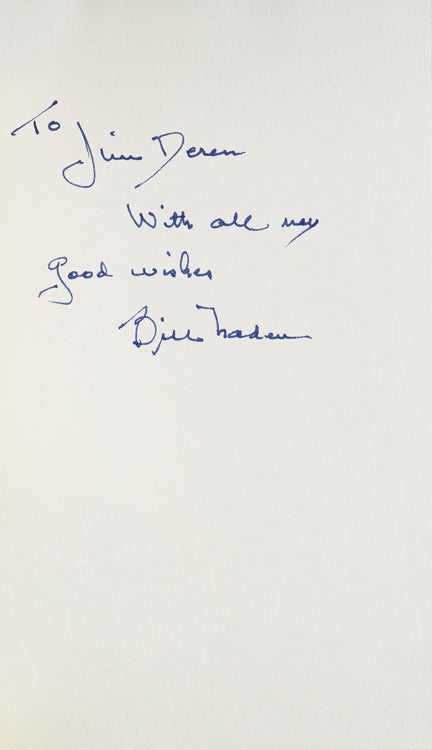 To
Jim Deren
With all my
good wishes
Bill Thaden